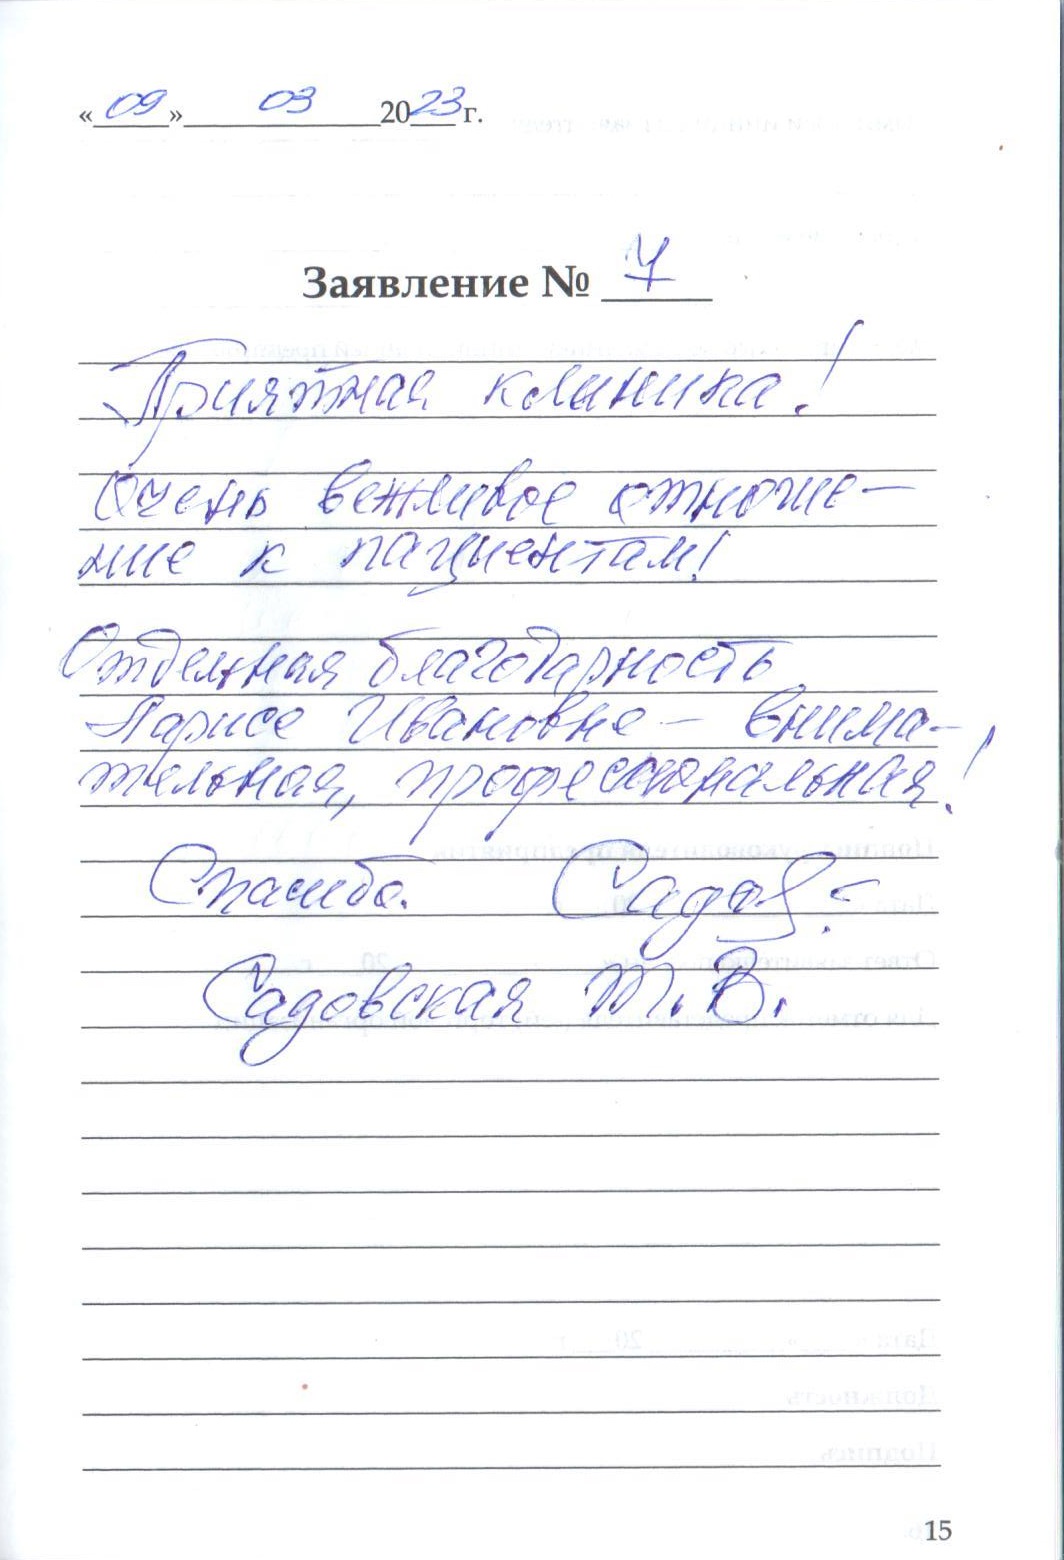 «09» 03 2023 г.
Заявление № 7
Приятная клиника!
Очень вежливое отноше-
ние к пациентам!
Отдельная благодарность
Ларисе Ивановне – внима-
тельная, профессиональная!
Спасибо. Садов
Садовская Т.В.
15